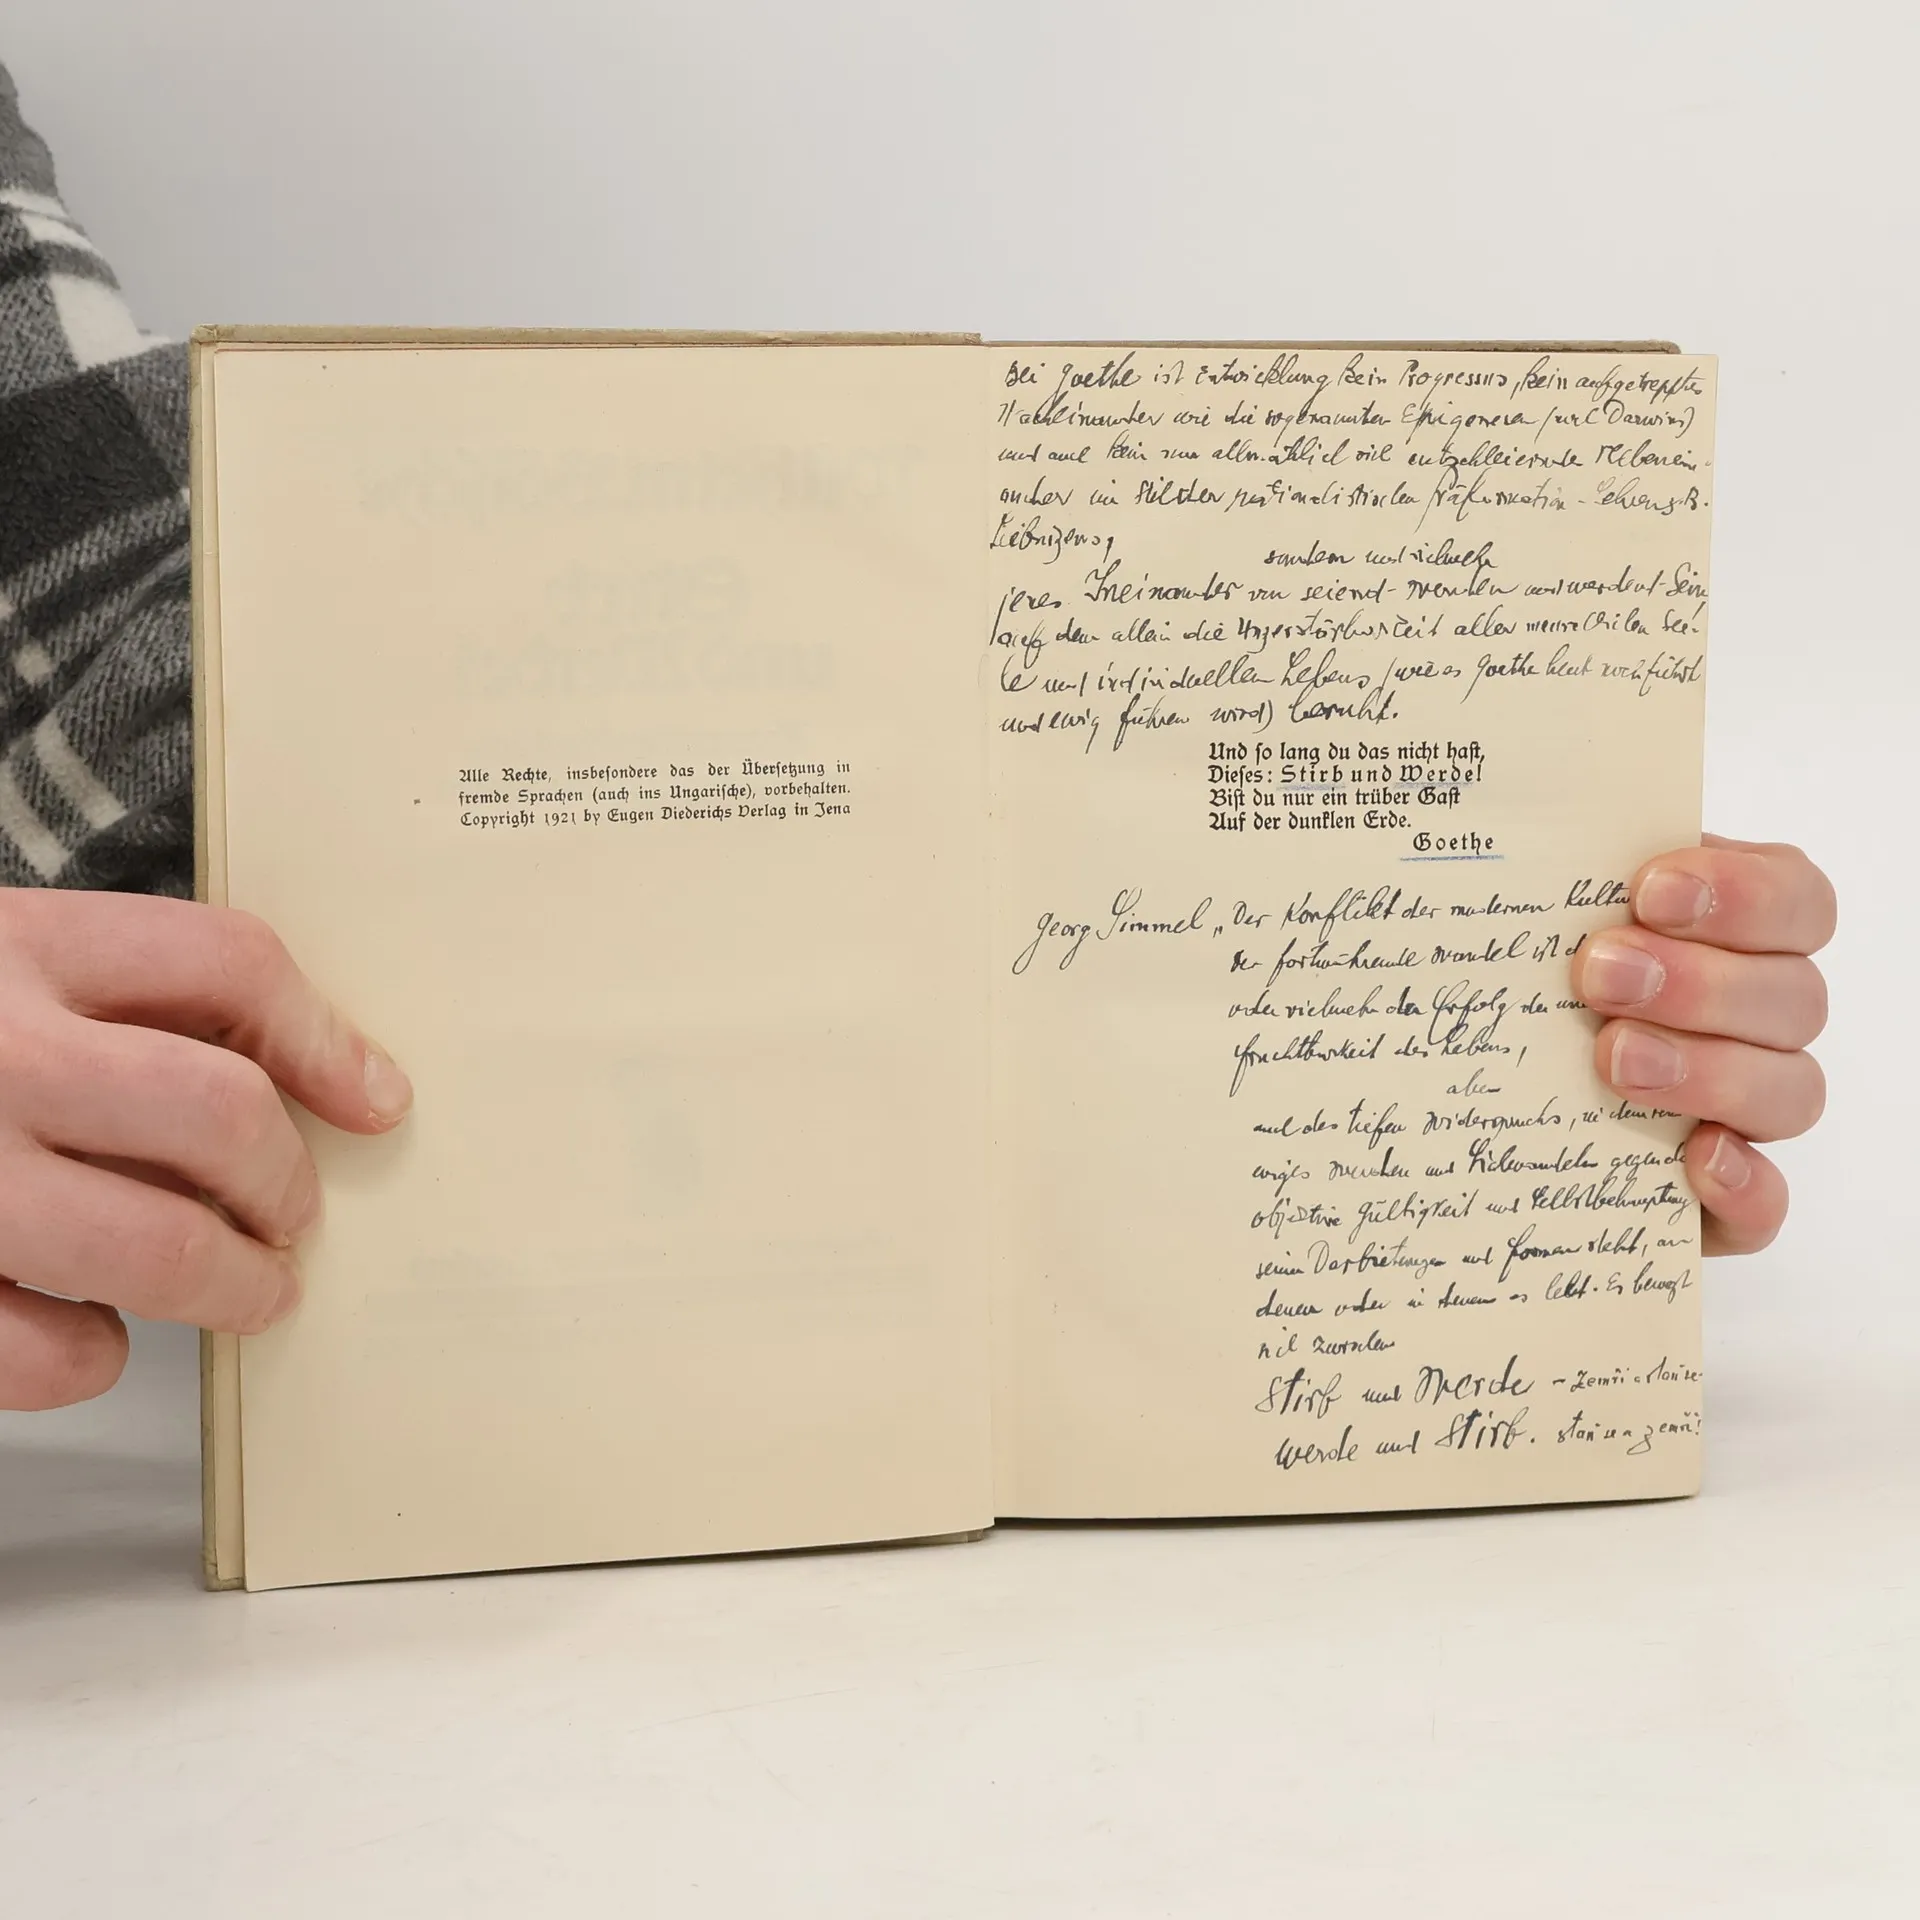 Alle Rechte, insbesondere das der Übersetzung in
fremde Sprachen (auch ins Ungarische), vorbehalten.
Copyright 1921 by Eugen Diederichs Verlag in Jena
Bei Goethe ist Entwicklung kein Progressus, kein aufgetrepptes
Nacheinander wie die sogenannten Epigenesen (und Darwins)
und auch kein nur allmählich sich entschleierndes Nebenein-
ander im Stile der rationalistischen Präformation-
Leibnizens,
sondern und vielmehr
jenes Ineinander von seiend-werden und werdend-Sein
auf dem allein die Unzerstörbarkeit aller menschlichen See-
le und individuellen Lebens (wie es Goethe heut noch führt
und ewig führen wird) beruht.
Und so lang du das nicht hast,
Dieses: Stirb und Werde!
Bist du nur ein trüber Gast
Auf der dunklen Erde.
Goethe
Georg Simmel „Der Konflikt der modernen Kultu
der fortwährende Wandel ist d
oder vielmehr der Erfolg der
Fruchtbarkeit des Lebens,
aber
auch des tiefen Widerspruchs, in dem
ewiges Werden und Sichwandeln gegen d
objektive Gültigkeit und Selbstbehauptung
seiner Darbietungen und Formen steht, an
denen oder in denen es lebt. Es bewegt
sich zwischen
Stirb und Werde - zemři a staň se-
Werde und Stirb. staň se a zemři!